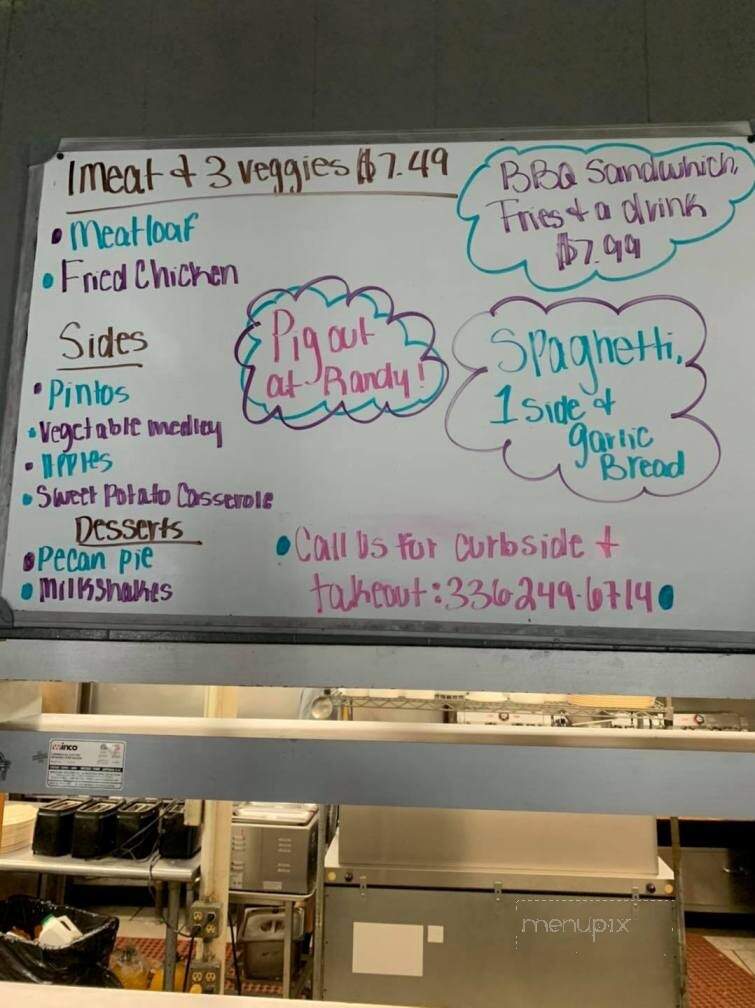 1 meat & 3 veggies $7.49
• Meatloaf
• Fried Chicken
Sides
• Pintos
• Vegetable medley
• Apples
• Sweet Potato Casserole
Desserts
• Pecan pie
• Milkshakes
BBQ Sandwhich,
Fries & a drink
$7.99
Pig out
at Randy!
Spaghetti,
1 side &
garlic
Bread
• Call Us For curbside &
takeout: 336-249-6714 •
winco
menupix